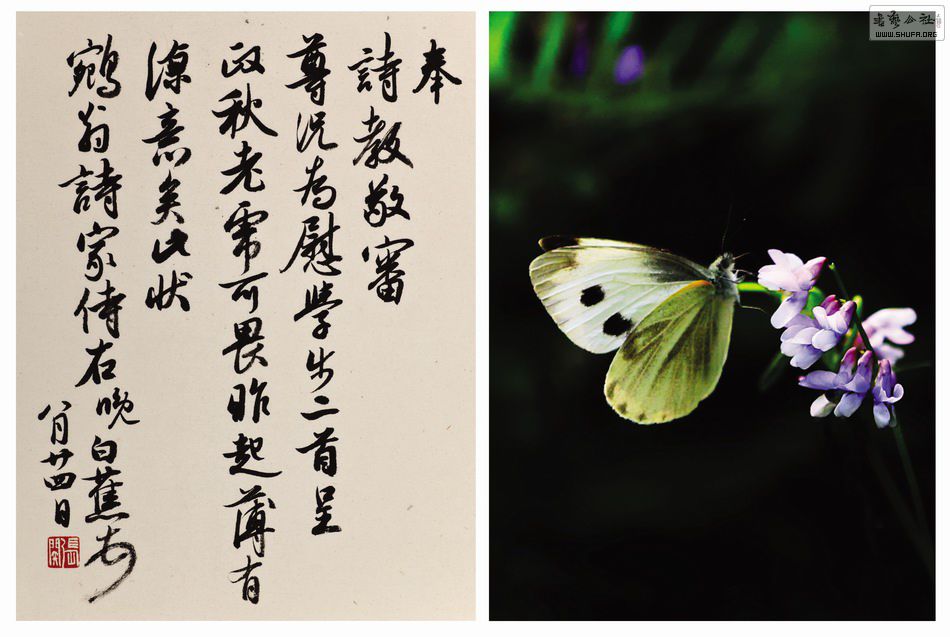 奉
詩教敬審
尊况为慰學步二首呈
政秋老虎可畏昨起薄有
涼意矣此状
鵷翁詩家侍右晚白蕉頓
八月廿四日
書藝公社
WWW.SHUFA.ORG